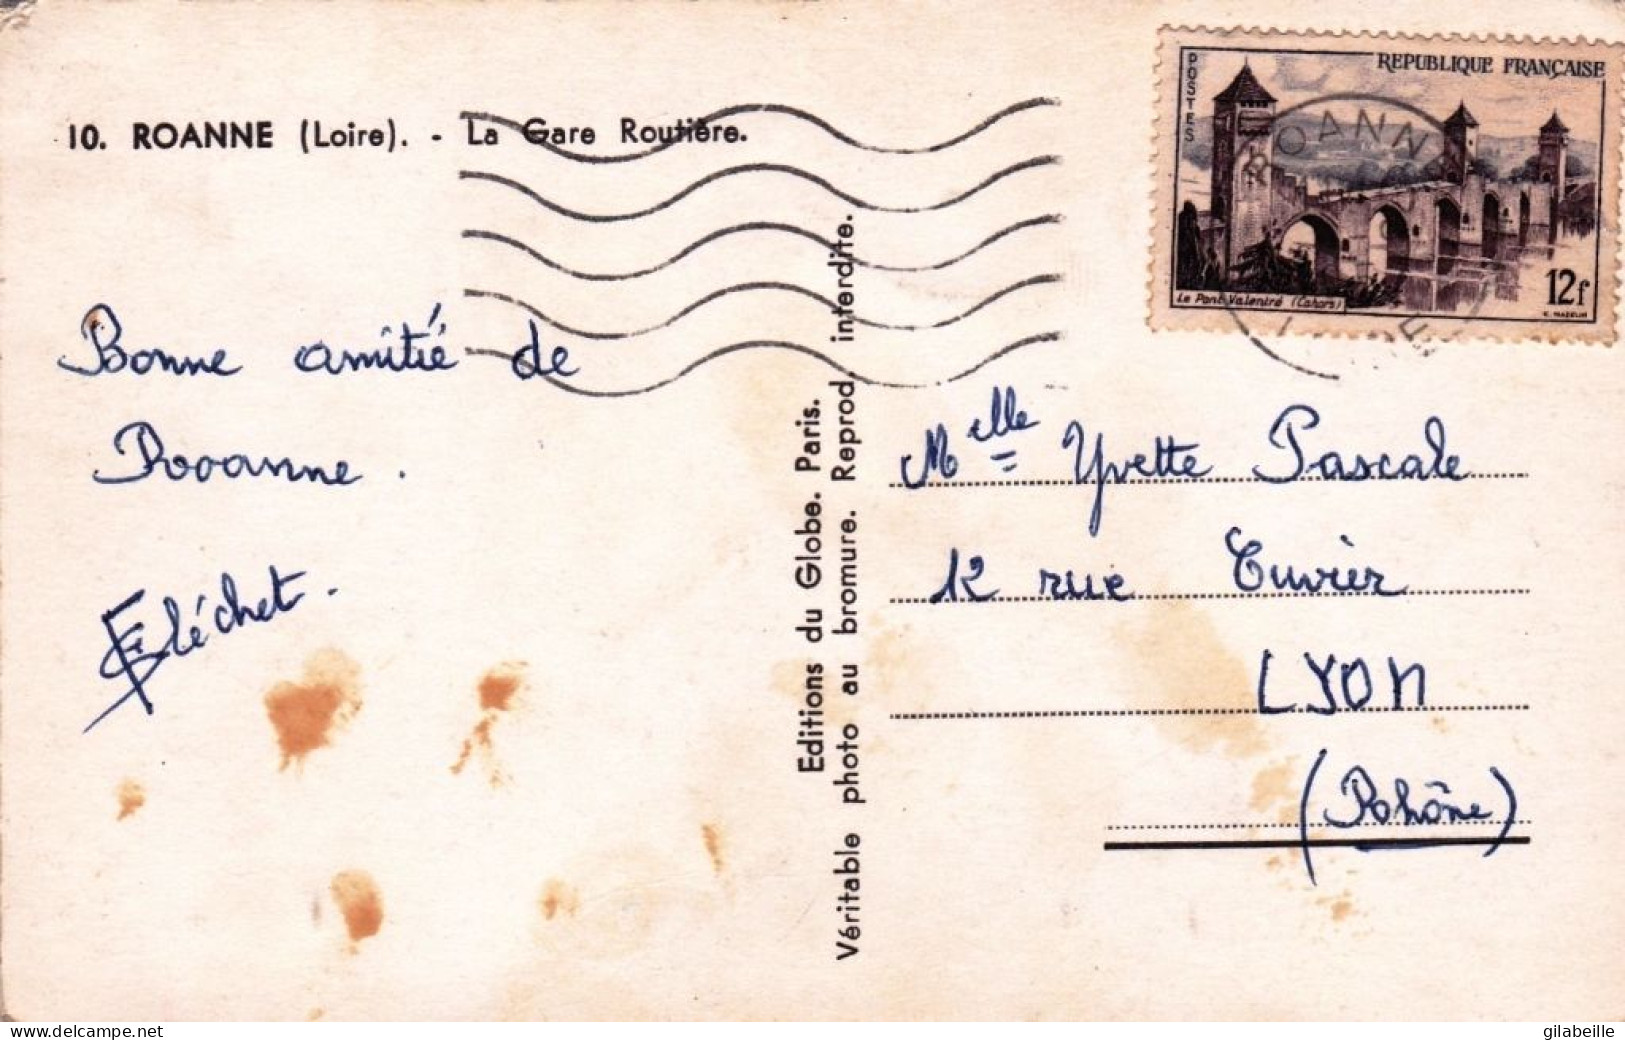 10. ROANNE (Loire). - La Gare Routière.
REPUBLIQUE FRANÇAISE
POSTES
ROANNE
Le Pont Valentré (Cahors)
12f
Bonne amitié de
Roanne.
Fléchet.
Editions du Globe. Paris.
Véritable photo au bromure. Reprod. interdite.
Melle Yvette Pascale
12 rue Cuvier
LYON
(Rhône)
https://www.delcampe.net
gilabeille